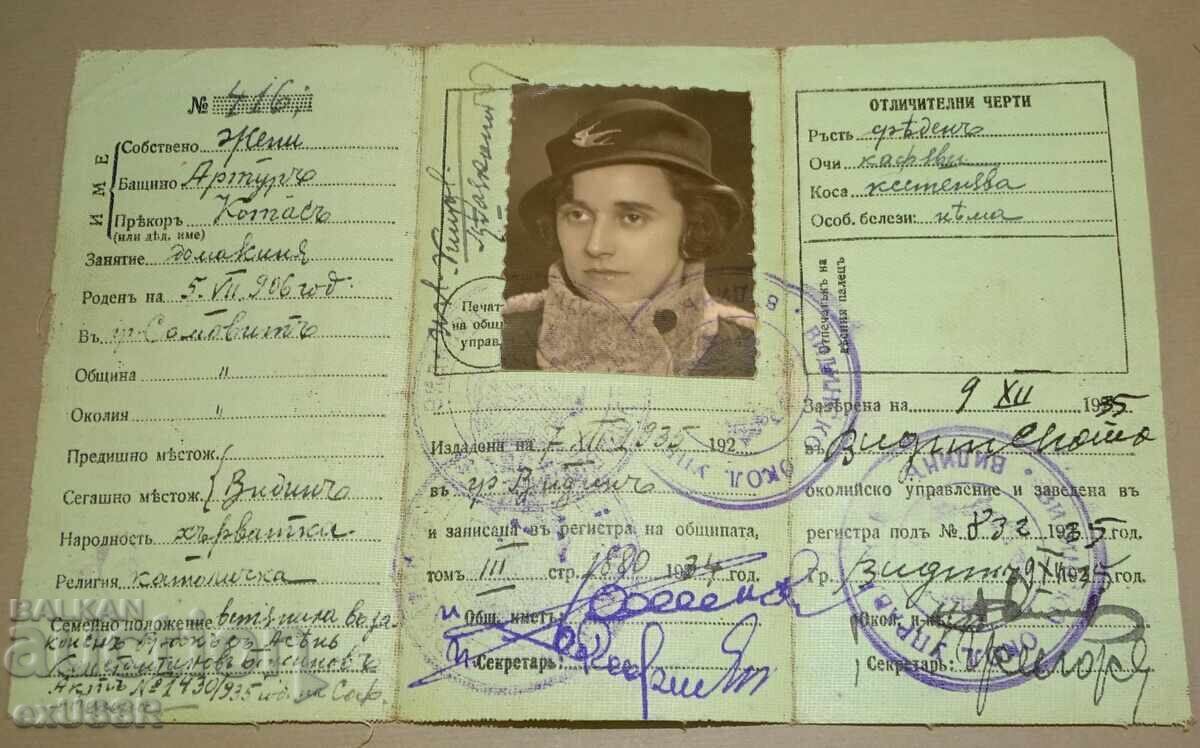 № 416
ИМЕ
Собствено Жени
Бащино Артуръ
Прѣкоръ Котасъ
(или дѣд. име)
Занятие домакиня
Роденъ на 5. VII 906 год.
Въ гр. Сомовитъ
Община "
Околия "
Предишно мѣстож.
Сегашно мѣстож. Видинъ
Народность хърватка
Религия католичка
Семейно положение встѫпила въ за
коненъ бракъ съ Асѣнъ
Константиновъ
Актъ № 1430/935 год. на Соф.
Печатъ
на общ.
управ.
Издадена на 7. XII 1935 192
въ гр. Видинъ
и записана въ регистра на общината,
томъ III стр. 1880 1934 год.
Общ. кметъ:
Секретарь:
ОТЛИЧИТЕЛНИ ЧЕРТИ
Ръсть срѣденъ
Очи кафяви
Коса кестенява
Особ. белези: нѣма
Отпечатъкъ на
лѣвия палецъ
Завѣрена на 9 XII 1935
въ Видинската
околийско управление и заведена въ
регистра подъ № 832 1935 год.
Гр. Видинъ 9 XII 1935
Окол. н-къ:
Секретарь:
ВИДИНСКО ОКОЛ. УПР
ВИДИНЪ
ОКОЛ. УПРАВ
BALKAN
exussR